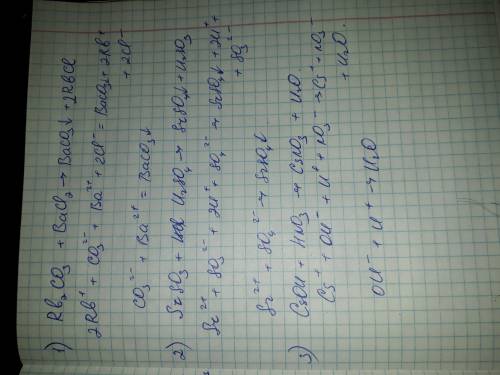 1) Rb₂CO₃ + BaCl₂ → BaCO₃↓ + 2RBCl
2Rb⁺ + CO₃²⁻ + Ba²⁺ + 2Cl⁻ = BaCO₃↓ + 2Rb⁺
+ 2Cl⁻
CO₃²⁻ + Ba²⁺ = BaCO₃↓
2) SrSO₃ + H₂SO₄ → SrSO₄↓ + H₂SO₃
Sr²⁺ + SO₃²⁻ + 2H⁺ + SO₄²⁻ → SrSO₄↓ + 2H⁺
+ SO₃²⁻
Sr²⁺ + SO₄²⁻ → SrSO₄↓
3) CsOH + HNO₃ → CsNO₃ + H₂O
Cs⁺ + OH⁻ + H⁺ + NO₃⁻ → Cs⁺ + NO₃⁻
+ H₂O.
OH⁻ + H⁺ → H₂O